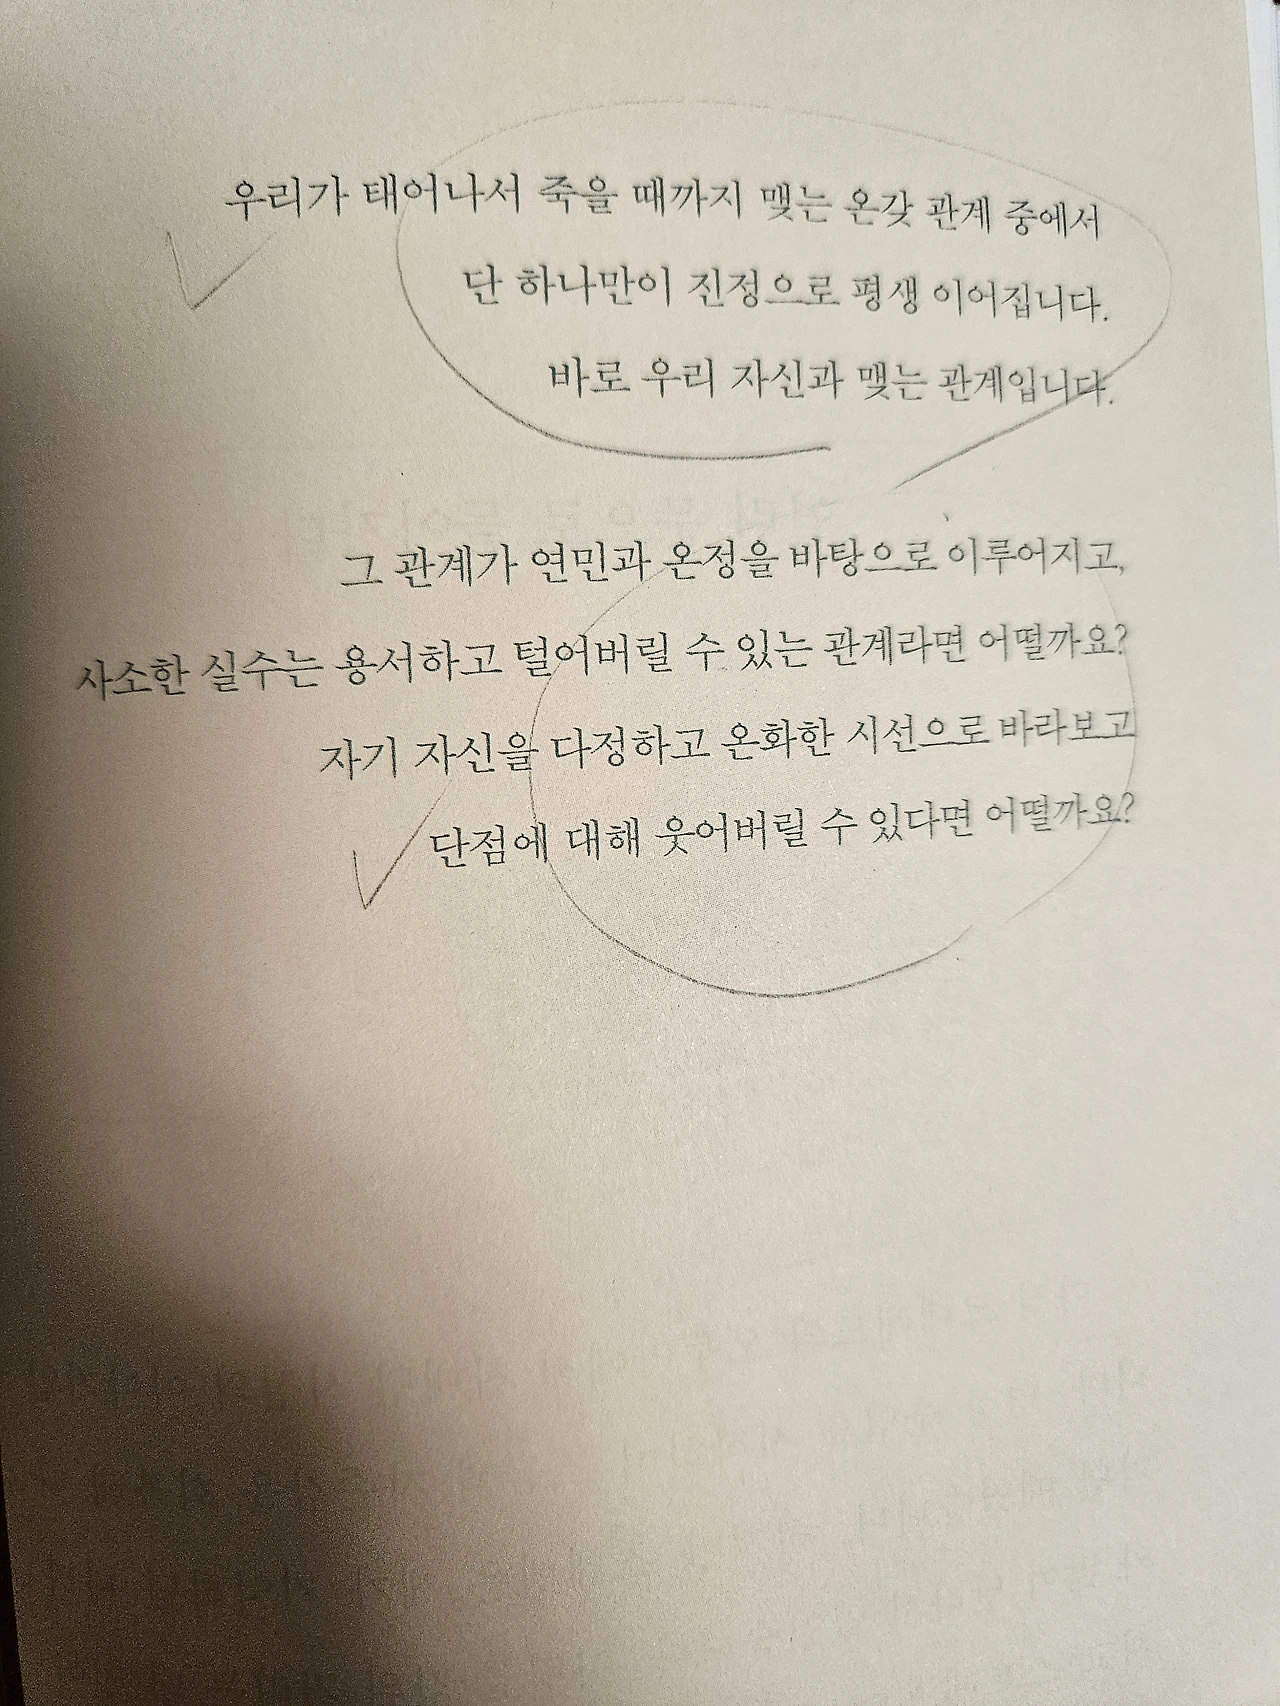 우리가 태어나서 죽을 때까지 맺는 온갖 관계 중에서
단 하나만이 진정으로 평생 이어집니다.
바로 우리 자신과 맺는 관계입니다.
그 관계가 연민과 온정을 바탕으로 이루어지고,
사소한 실수는 용서하고 털어버릴 수 있는 관계라면 어떨까요?
자기 자신을 다정하고 온화한 시선으로 바라보고
단점에 대해 웃어버릴 수 있다면 어떨까요?